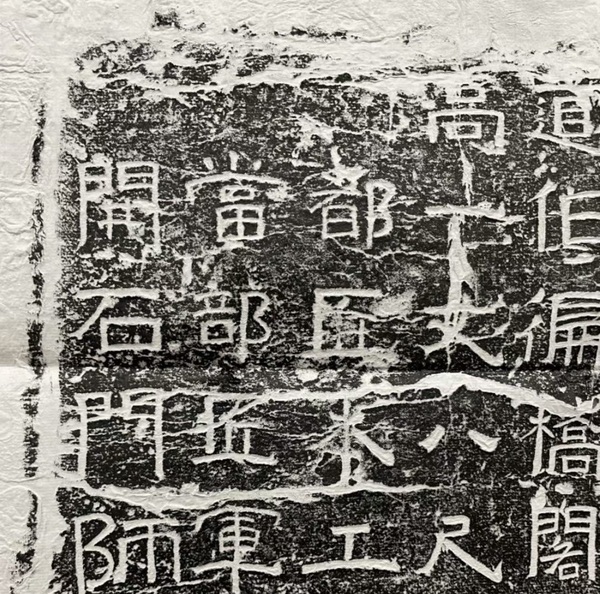 伯徧橋閣
高一丈八尺
都匠木工
當部匠軍
開石門師